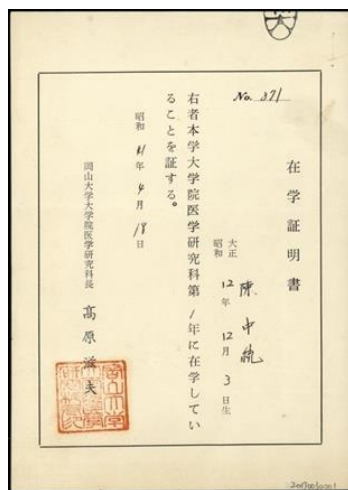 No. 371
在学証明書
陳中統
大正
昭和
12年12月3日生
右者本学大学院医学研究科第1年に在学してい
ることを証する。
昭和41年4月18日
岡山大学大学院医学研究科長 高原滋夫